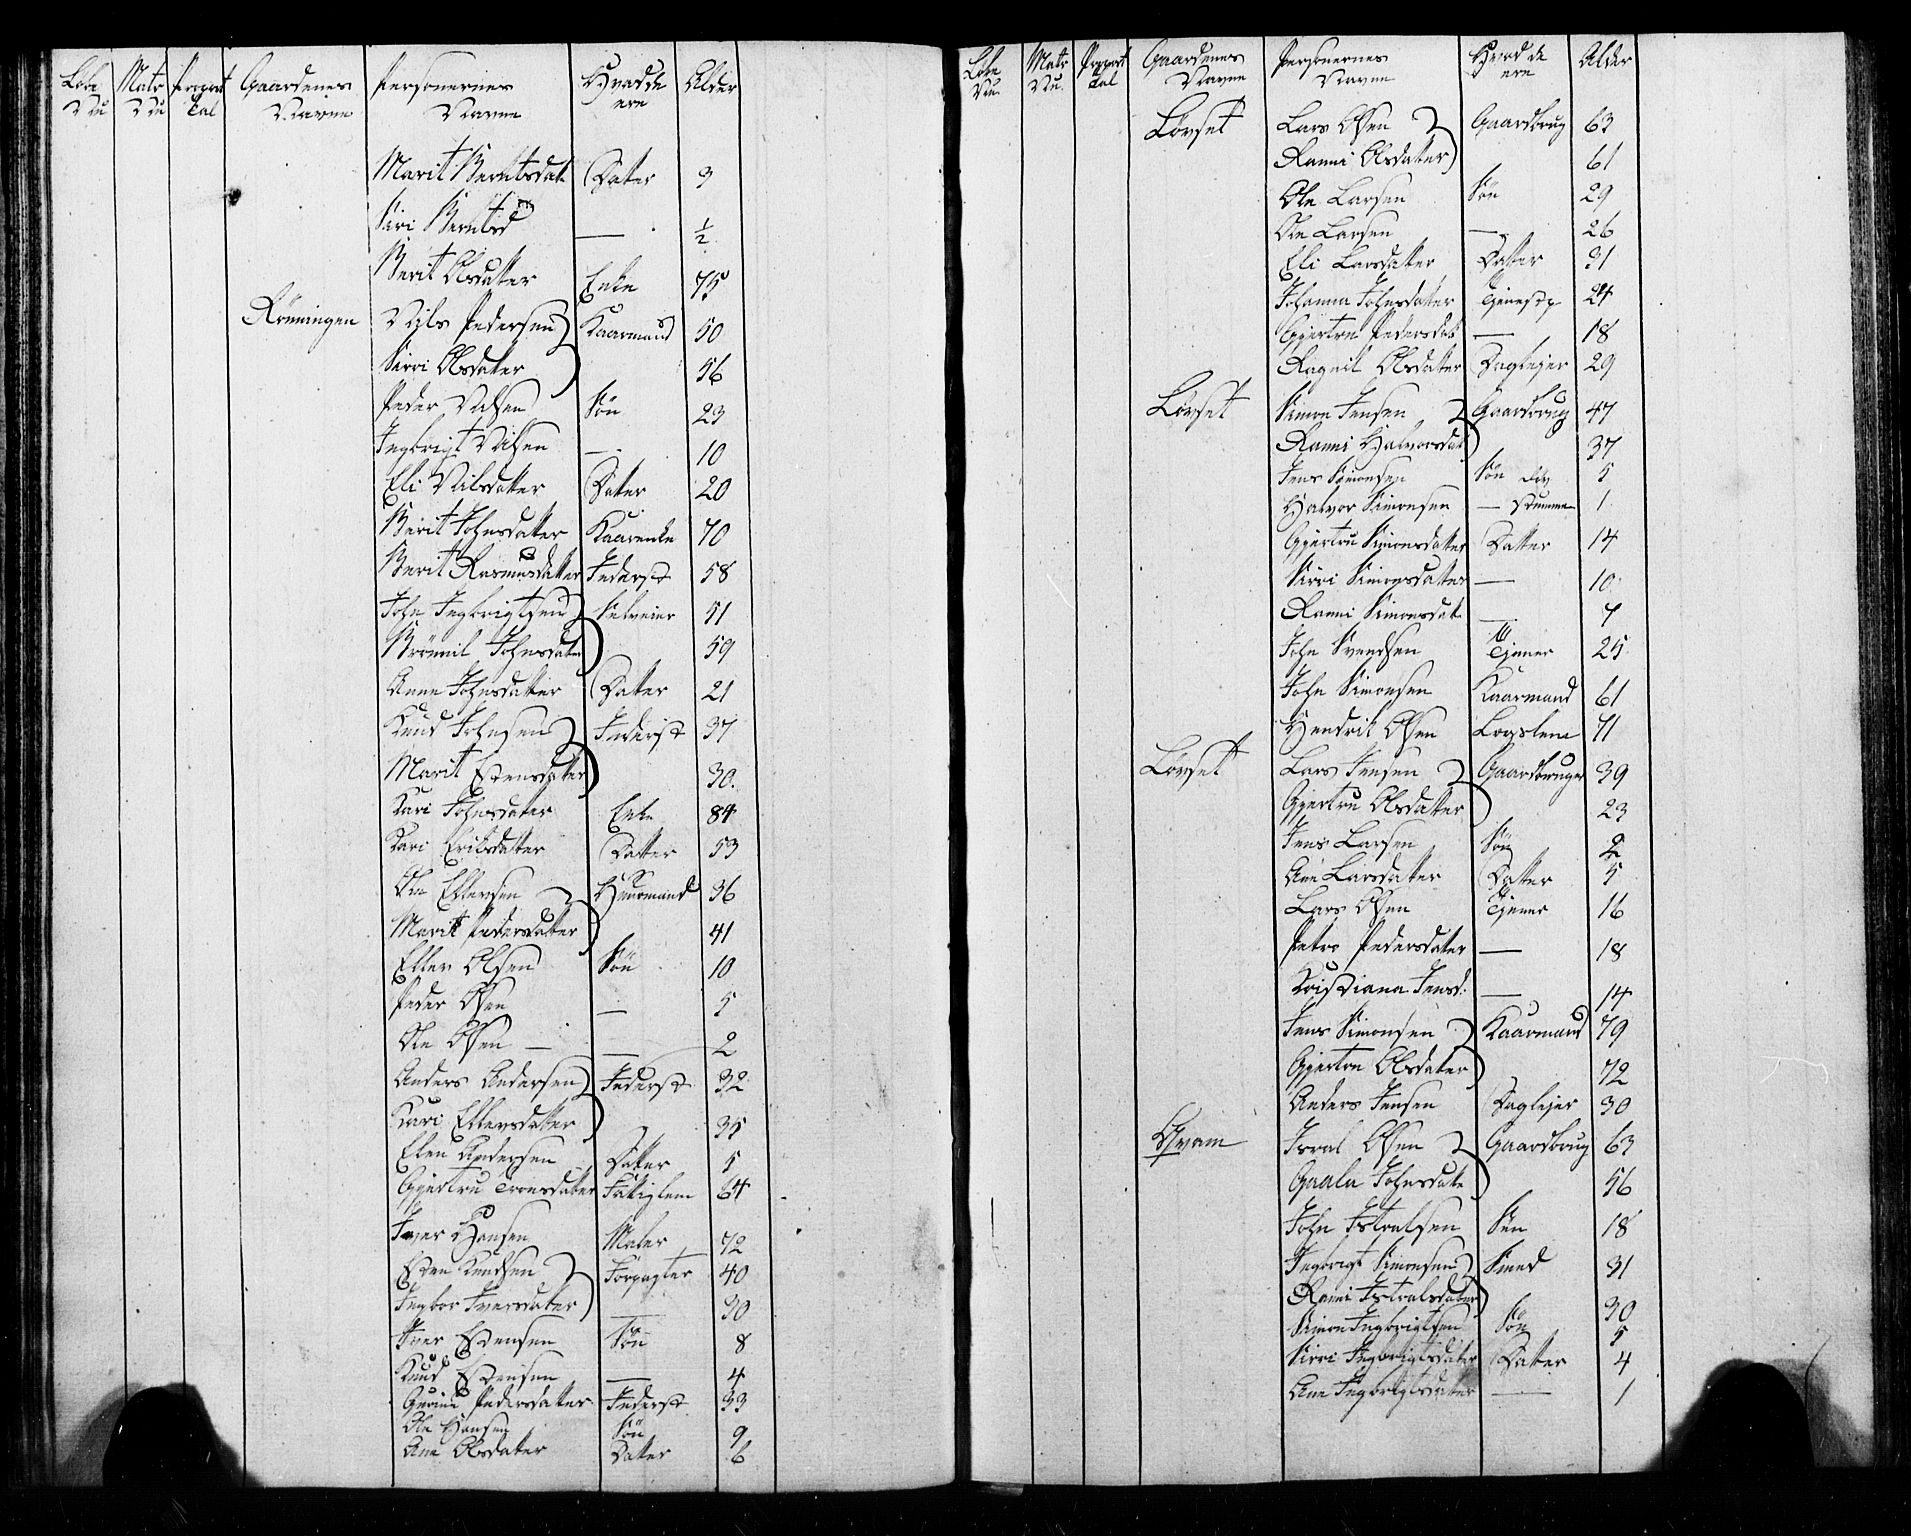 Løbe Nu Matr Nu Proport Tal Gaardenes Navne Personernes Navne Hvad de ere Alder
Marit Berntsdat Datter 3
Siri Berntsd — ½
Berit Olsdatter Enke 75
Rönningen Nils Pedersen Kaarmand 50
Sirri Olsdatter 56
Peder Nilsen Sön 23
Ingbrigt Nilsen — 10
Eli Nilsdatter Datter 20
Berit Johnsdatter Kaarenke 70
Berit Rasmusdatter Inderst 58
John Ingbrigtsen Selveier 51
Brönnil Johnsdatter 59
Anne Johnsdatter Datter 21
Knud Johnsen Inderst 37
Marit Estensdatter 30.
Kari Johnsdatter Enke 84
Kari Eriksdatter Datter 53
Ole Ellevsen Huusmand 36
Marit Pedersdatter 41
Ellev Olsen Sön 10
Peder Olsen — 5
Ole Olsen — — 2
Anders Andersen Inderst 32
Kari Ellevsdatter 35
Elen Andersen Datter 5
Gjertru Tronsdatter Fattiglem 64
Iver Hansen Maler 72
Esten Knudsen Forpagter 40
Ingbor Iversdatter — 30
Iver Estensen Sön 8
Knud Estensen — 4
Gurine Pedersdatter Inderst 33
Ole Hansen Sön 9
Ane Olsdatter Datter 6
Løbe Nu. Matr Nu. Proport Tal Gaardenes Navne Personernes Navne Hvad de ere Alder
Løvset Lars Olsen Gaardbrug 63
Ranni Olsdatter 61
Ole Larsen Sön 29
Ole Larsen — 26
Eli Larsdatter Datter 31
Johanna Johnsdatter Tjenestp 24
Gjertru Pedersdat — 18
Ragnil Olsdatter Daglejer 29
Løvset Simon Jensen Gaardbrug 47
Ranni Halvorsdat 37
Jens Simonsen Sön döv 5
Halvor Simonsen — stumme 1
Gjertru Simonsdatter Datter 14
Sirri Simonsdatter — 10
Ranni Simonsdat — 7
John Svendsen Tjener 25
John Simonsen Kaarmand 61
Hendrik Olsen Logslem 71
Løvset Lars Jensen Gaardbruger 39
Gjertru Olsdatter 23
Jens Larsen Sön 2
Ane Larsdatter Datter 5
Lars Olsen Tjener 16
Petro Pedersdatter — 18
Kristiana Jensd. — 14
Jens Simonsen Kaarmand 79
Gjertru Olsdatter 72
Anders Jensen Daglejer 30
Qvam Isral Olsen Gaardbrug 63
Gaala Johnsdate 56
John Istralsen Sön 18
Ingbrigt Simonsen Smed 31
Ranni Istralsdatter 30
Simon Ingbrigtsen Sön 5
Sirri Ingbrigtsdatter Datter 4
Ane Ingbrigtsdatter — 1